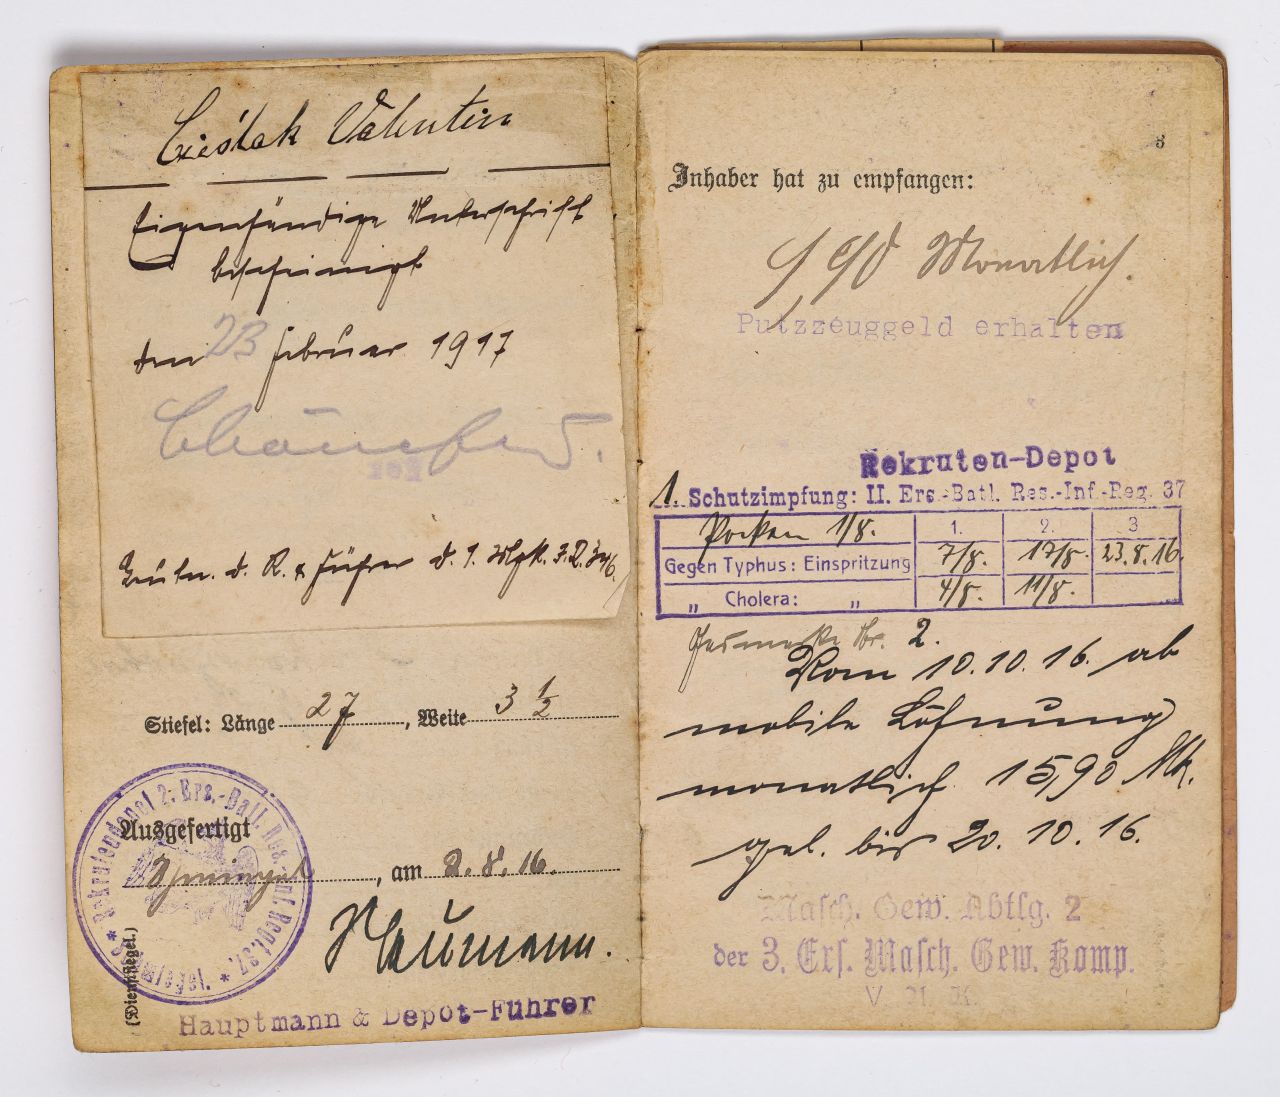 Cieślak Valentin
Eigenhändige Unterschrift
bescheinigt
den 23 Februar 1917
Leutn. d. R. & Führer d. 1.
Stiefel: Länge 27, Weite 3 1/2
Rekrutendepot 2. Ers.-Batl. Res.-Inf. Regt. 37.
Ausgefertigt
, am 2.8.16.
(Dienstsiegel.)
Naumann.
Hauptmann & Depot-Führer
8
Inhaber hat zu empfangen:
Monatlich.
Putzzeuggeld erhalten
Rekruten-Depot
1. Schutzimpfung: II. Ers.-Batl. Res.-Inf.-Reg. 37
Pocken 1/8. 1. 2. 3
Gegen Typhus: Einspritzung 7/8. 17/8. 23.8.16.
„ Cholera: „ 4/8. 11/8.
Gasmaske Nr. 2.
Vom 10.10.16. ab
mobile Löhnung
monatlich 15,90 Mk.
gel. bis 20.10.16.
Masch. Gew. Abtlg. 2
der 3. Ers. Masch. Gew. Komp.
V. A. K.